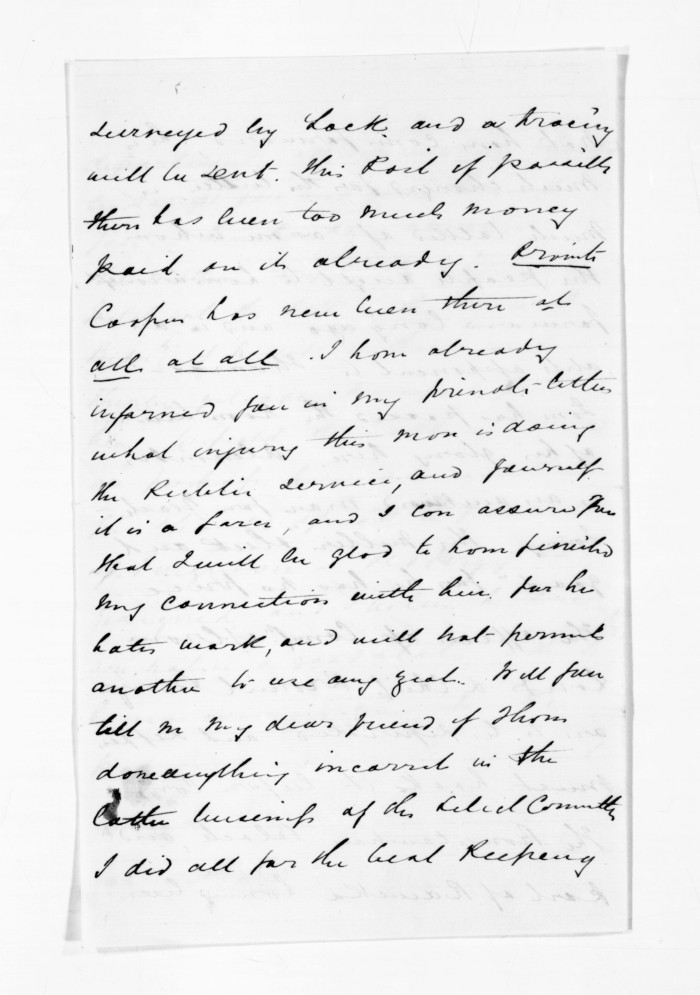 surveyed by Lock. and a tracing
will be sent. This Root if possible
there has been too much money
paid on it already. Private
Cooper has never been there at
all at all. I have already
informed you in my private letters
what injury this man is doing
the Public service, and yourself
it is a farce, and I can assure you
that I will be glad to have finished
my connection with him. for he
hates work, and will not permit
another to use any zeal. Will you
tell me my dear friend if I have
done anything incorrect in the
Cattle business of the Select Committee
I did all for the best Keeping